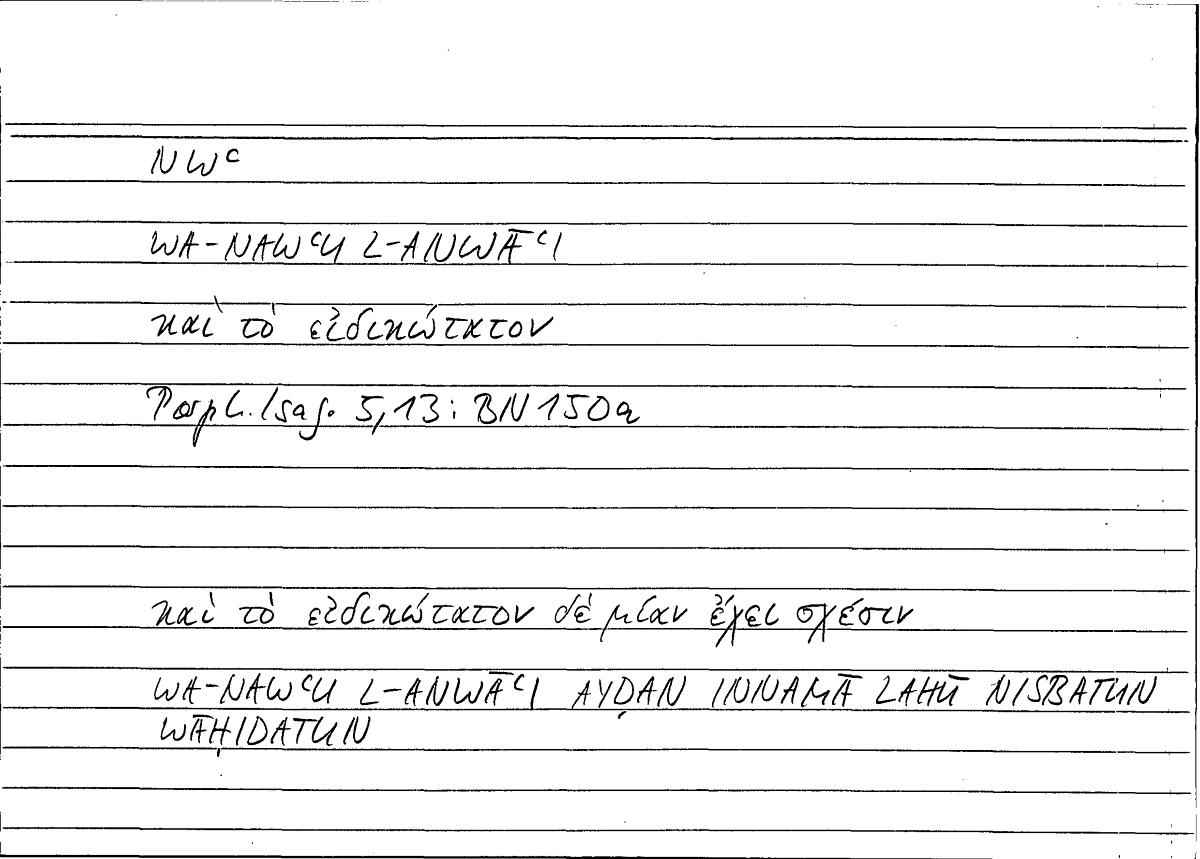 NWᶜ
WA-NAWᶜU L-ANWĀᶜI
καὶ τὸ εἰδικώτατον
Porph. Isag. 5,13: BN 150a
καὶ τὸ εἰδικώτατον δὲ μίαν ἔχει σχέσιν
WA-NAWᶜU L-ANWĀᶜI AYḌAN INNAMĀ LAHŪ NISBATUN
WĀḤIDATUN